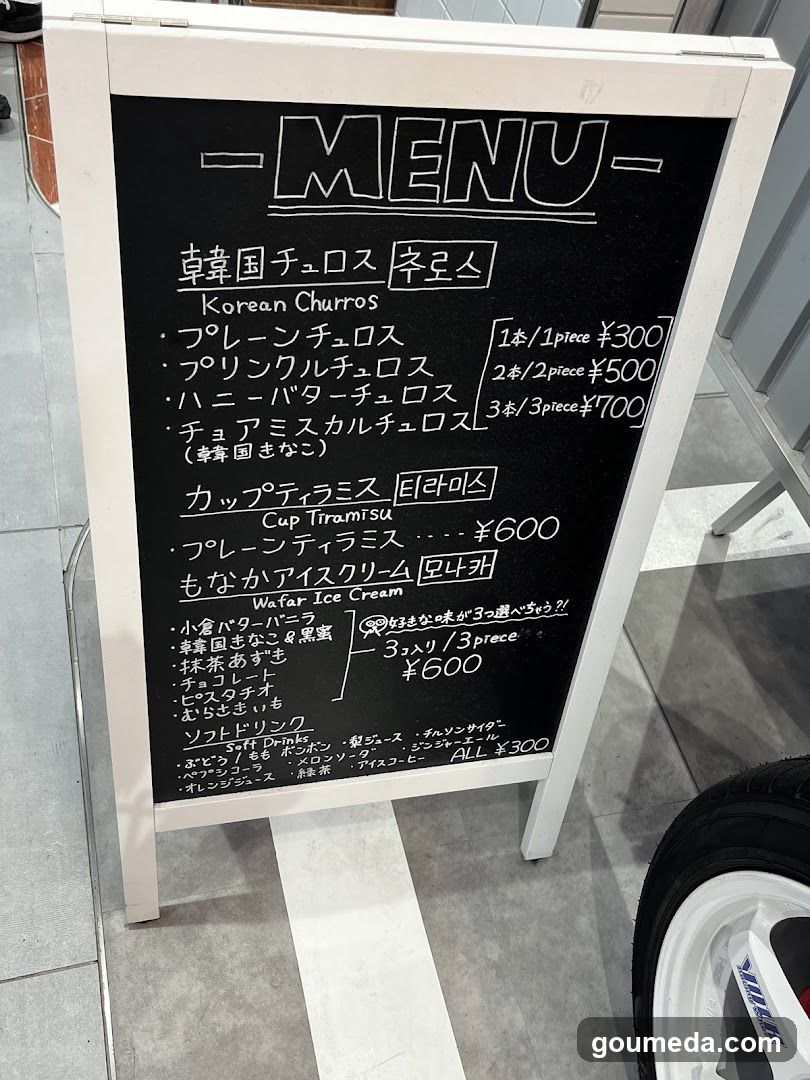 MENU
韓国チュロス 추로스
Korean Churros
・プレーンチュロス
・プリンクルチュロス
・ハニーバターチュロス
・チョアミスカルチュロス
(韓国きなこ)
1本/1piece ¥300
2本/2piece ¥500
3本/3piece ¥700
カップティラミス 티라미스
Cup Tiramisu
・プレーンティラミス ···· ¥600
もなかアイスクリーム 모나카
Wafar Ice Cream
・小倉バターバニラ
・韓国きなこ&黒蜜
・抹茶あずき
・チョコレート
・ピスタチオ
・むらさきいも
好きな味が3つ選べちゃう?!
3コ入り/3piece
¥600
ソフトドリンク
Soft Drinks
・ぶどう/もも ボンボン ・梨ジュース ・チルソンサイダー
・ペプシコーラ ・メロンソーダ ・ジンジャーエール
・オレンジジュース ・緑茶 ・アイスコーヒー ALL ¥300
goumeda.com